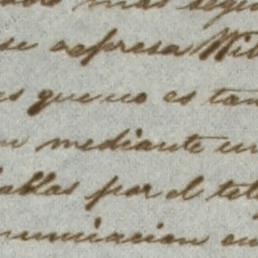 mas segu
se espresa Wil
es que no es tan
n mediante un
ablas por el tele
nunciacion en